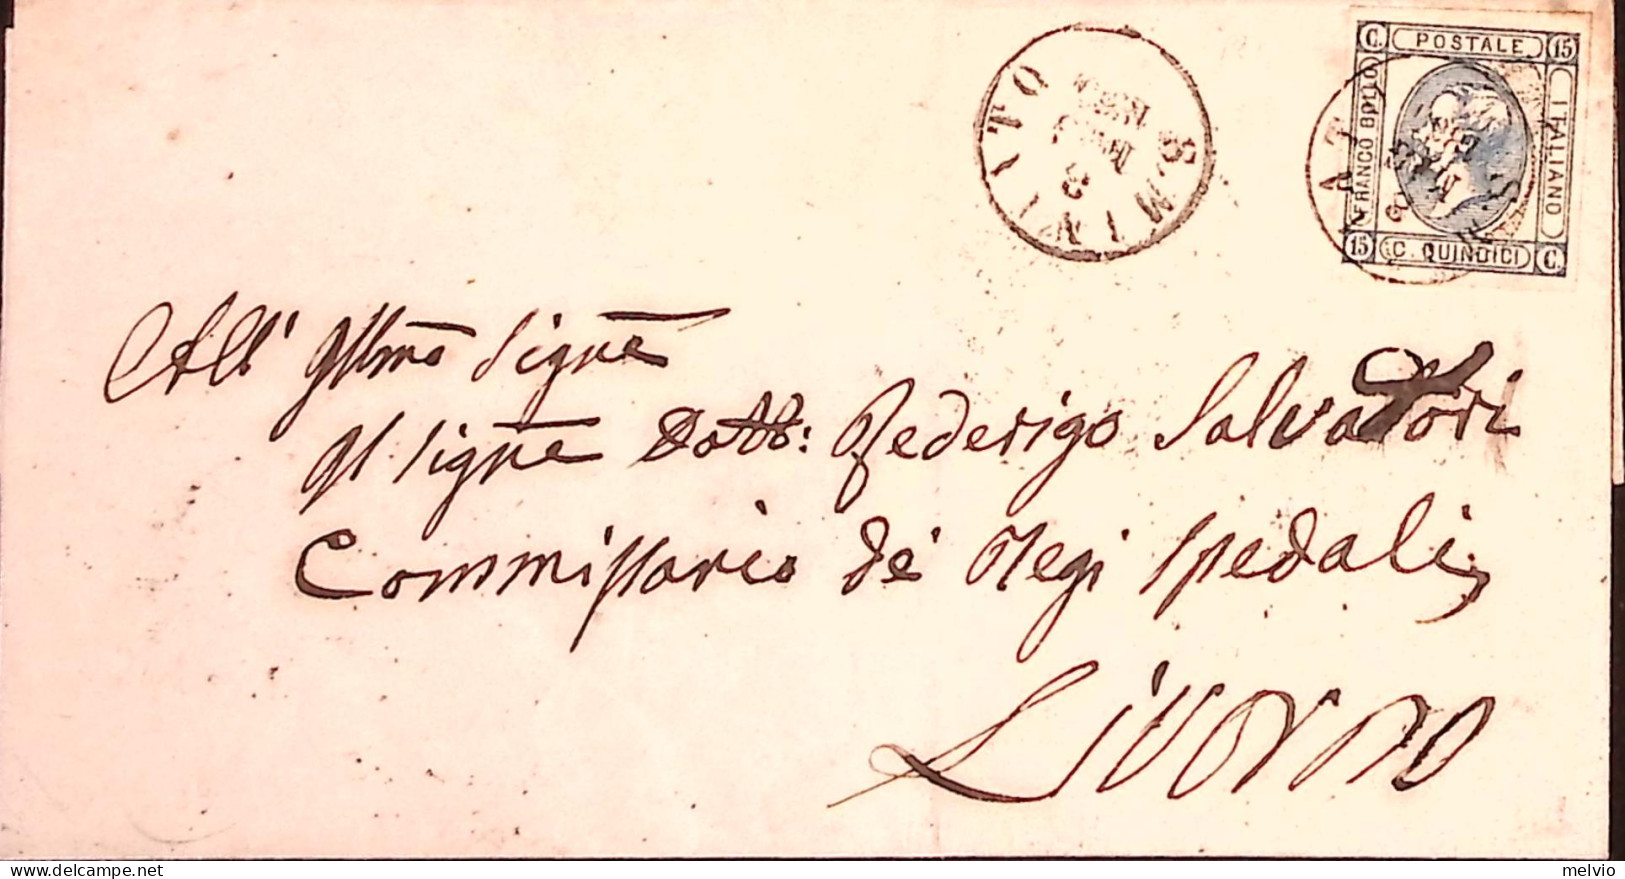 S. MINIATO
C. POSTALE 15
FRANCO BOLLO
ITALIANO
15 C. QUINDICI C.
All' Illmo Signe
Il Signe Dott: Federigo Salvatori
Commissario de' Regi Spedali,
Livorno
melvio